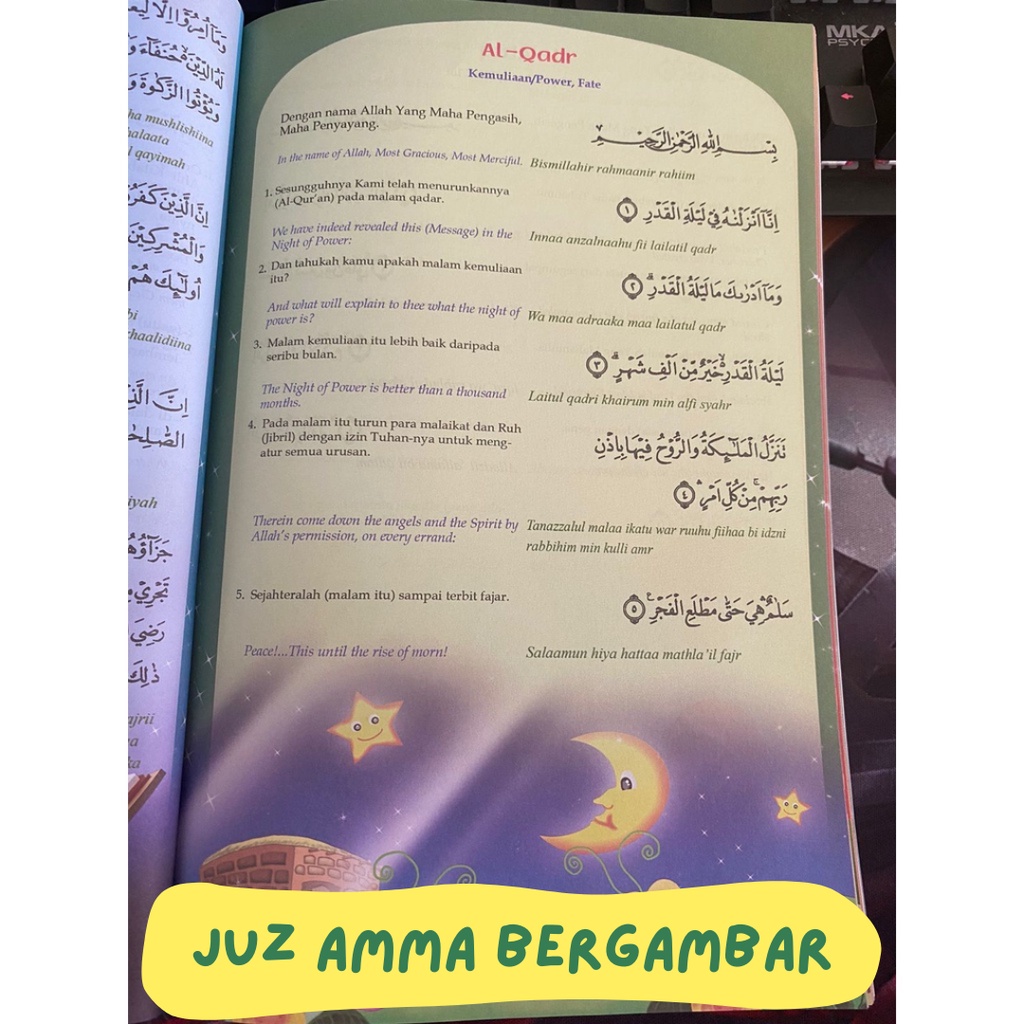 MKA
PSYC
وَمَآ اُمِرُوْٓا اِلَّا
ha mushlishiina
halaata
l qayimah
اِنَّ الَّذِيْنَ كَفَرُ
وَالْمُشْرِكِيْنَ
اُولٰٓئِكَ هُمْ
bi
khaalidiina
الصّٰلِحٰ
iyah
جَزَآؤُهُ
تَجْرِيْ
رَضِيَ
ذٰلِكَ
ajrii
Al-Qadr
Kemuliaan/Power, Fate
Dengan nama Allah Yang Maha Pengasih,
Maha Penyayang.
بِسْمِ اللهِ الرَّحْمٰنِ الرَّحِيْمِ
In the name of Allah, Most Gracious, Most Merciful.
Bismillahir rahmaanir rahiim
1. Sesungguhnya Kami telah menurunkannya
(Al-Qur'an) pada malam qadar.
اِنَّآ اَنْزَلْنٰهُ فِيْ لَيْلَةِ الْقَدْرِ ١
We have indeed revealed this (Message) in the
Night of Power:
Innaa anzalnaahu fii lailatil qadr
2. Dan tahukah kamu apakah malam kemuliaan
itu?
وَمَآ اَدْرٰىكَ مَا لَيْلَةُ الْقَدْرِۗ ٢
And what will explain to thee what the night of
power is?
Wa maa adraaka maa lailatul qadr
3. Malam kemuliaan itu lebih baik daripada
seribu bulan.
لَيْلَةُ الْقَدْرِ ەۙ خَيْرٌ مِّنْ اَلْفِ شَهْرٍۗ ٣
The Night of Power is better than a thousand
months.
Laitul qadri khairum min alfi syahr
4. Pada malam itu turun para malaikat dan Ruh
(Jibril) dengan izin Tuhan-nya untuk meng-
atur semua urusan.
تَنَزَّلُ الْمَلٰٓئِكَةُ وَالرُّوْحُ فِيْهَا بِاِذْنِ
رَبِّهِمْۚ مِنْ كُلِّ اَمْرٍۛ ٤
Therein come down the angels and the Spirit by
Allah's permission, on every errand:
Tanazzalul malaa ikatu war ruuhu fiihaa bi idzni
rabbihim min kulli amr
5. Sejahteralah (malam itu) sampai terbit fajar.
سَلٰمٌ ۛهِيَ حَتّٰى مَطْلَعِ الْفَجْرِ ٥
Peace!...This until the rise of morn!
Salaamun hiya hattaa mathla'il fajr
JUZ AMMA BERGAMBAR